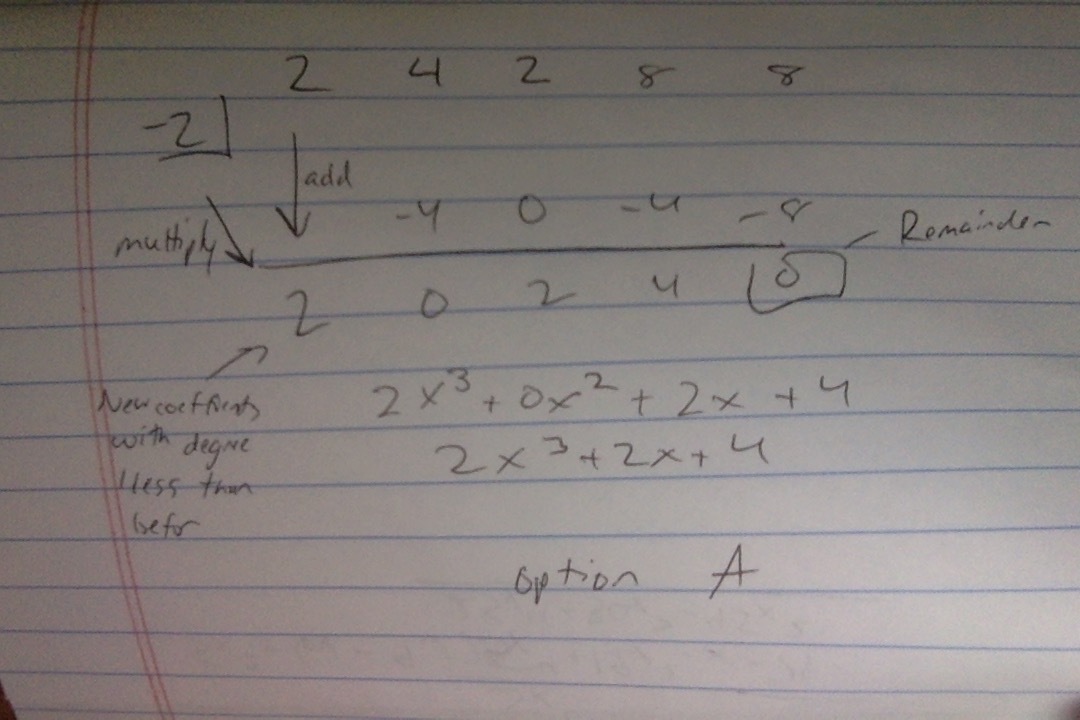 2 4 2 8 8
-2
add
-4 0 -4 -8
multiply
Remainder
2 0 2 4 0
New coefficients
with degree
1 less than
befor
2x³ + 0x² + 2x + 4
2x³ + 2x + 4
option A